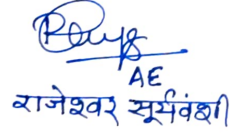 AE
राजेश्वर सूर्यवंशी